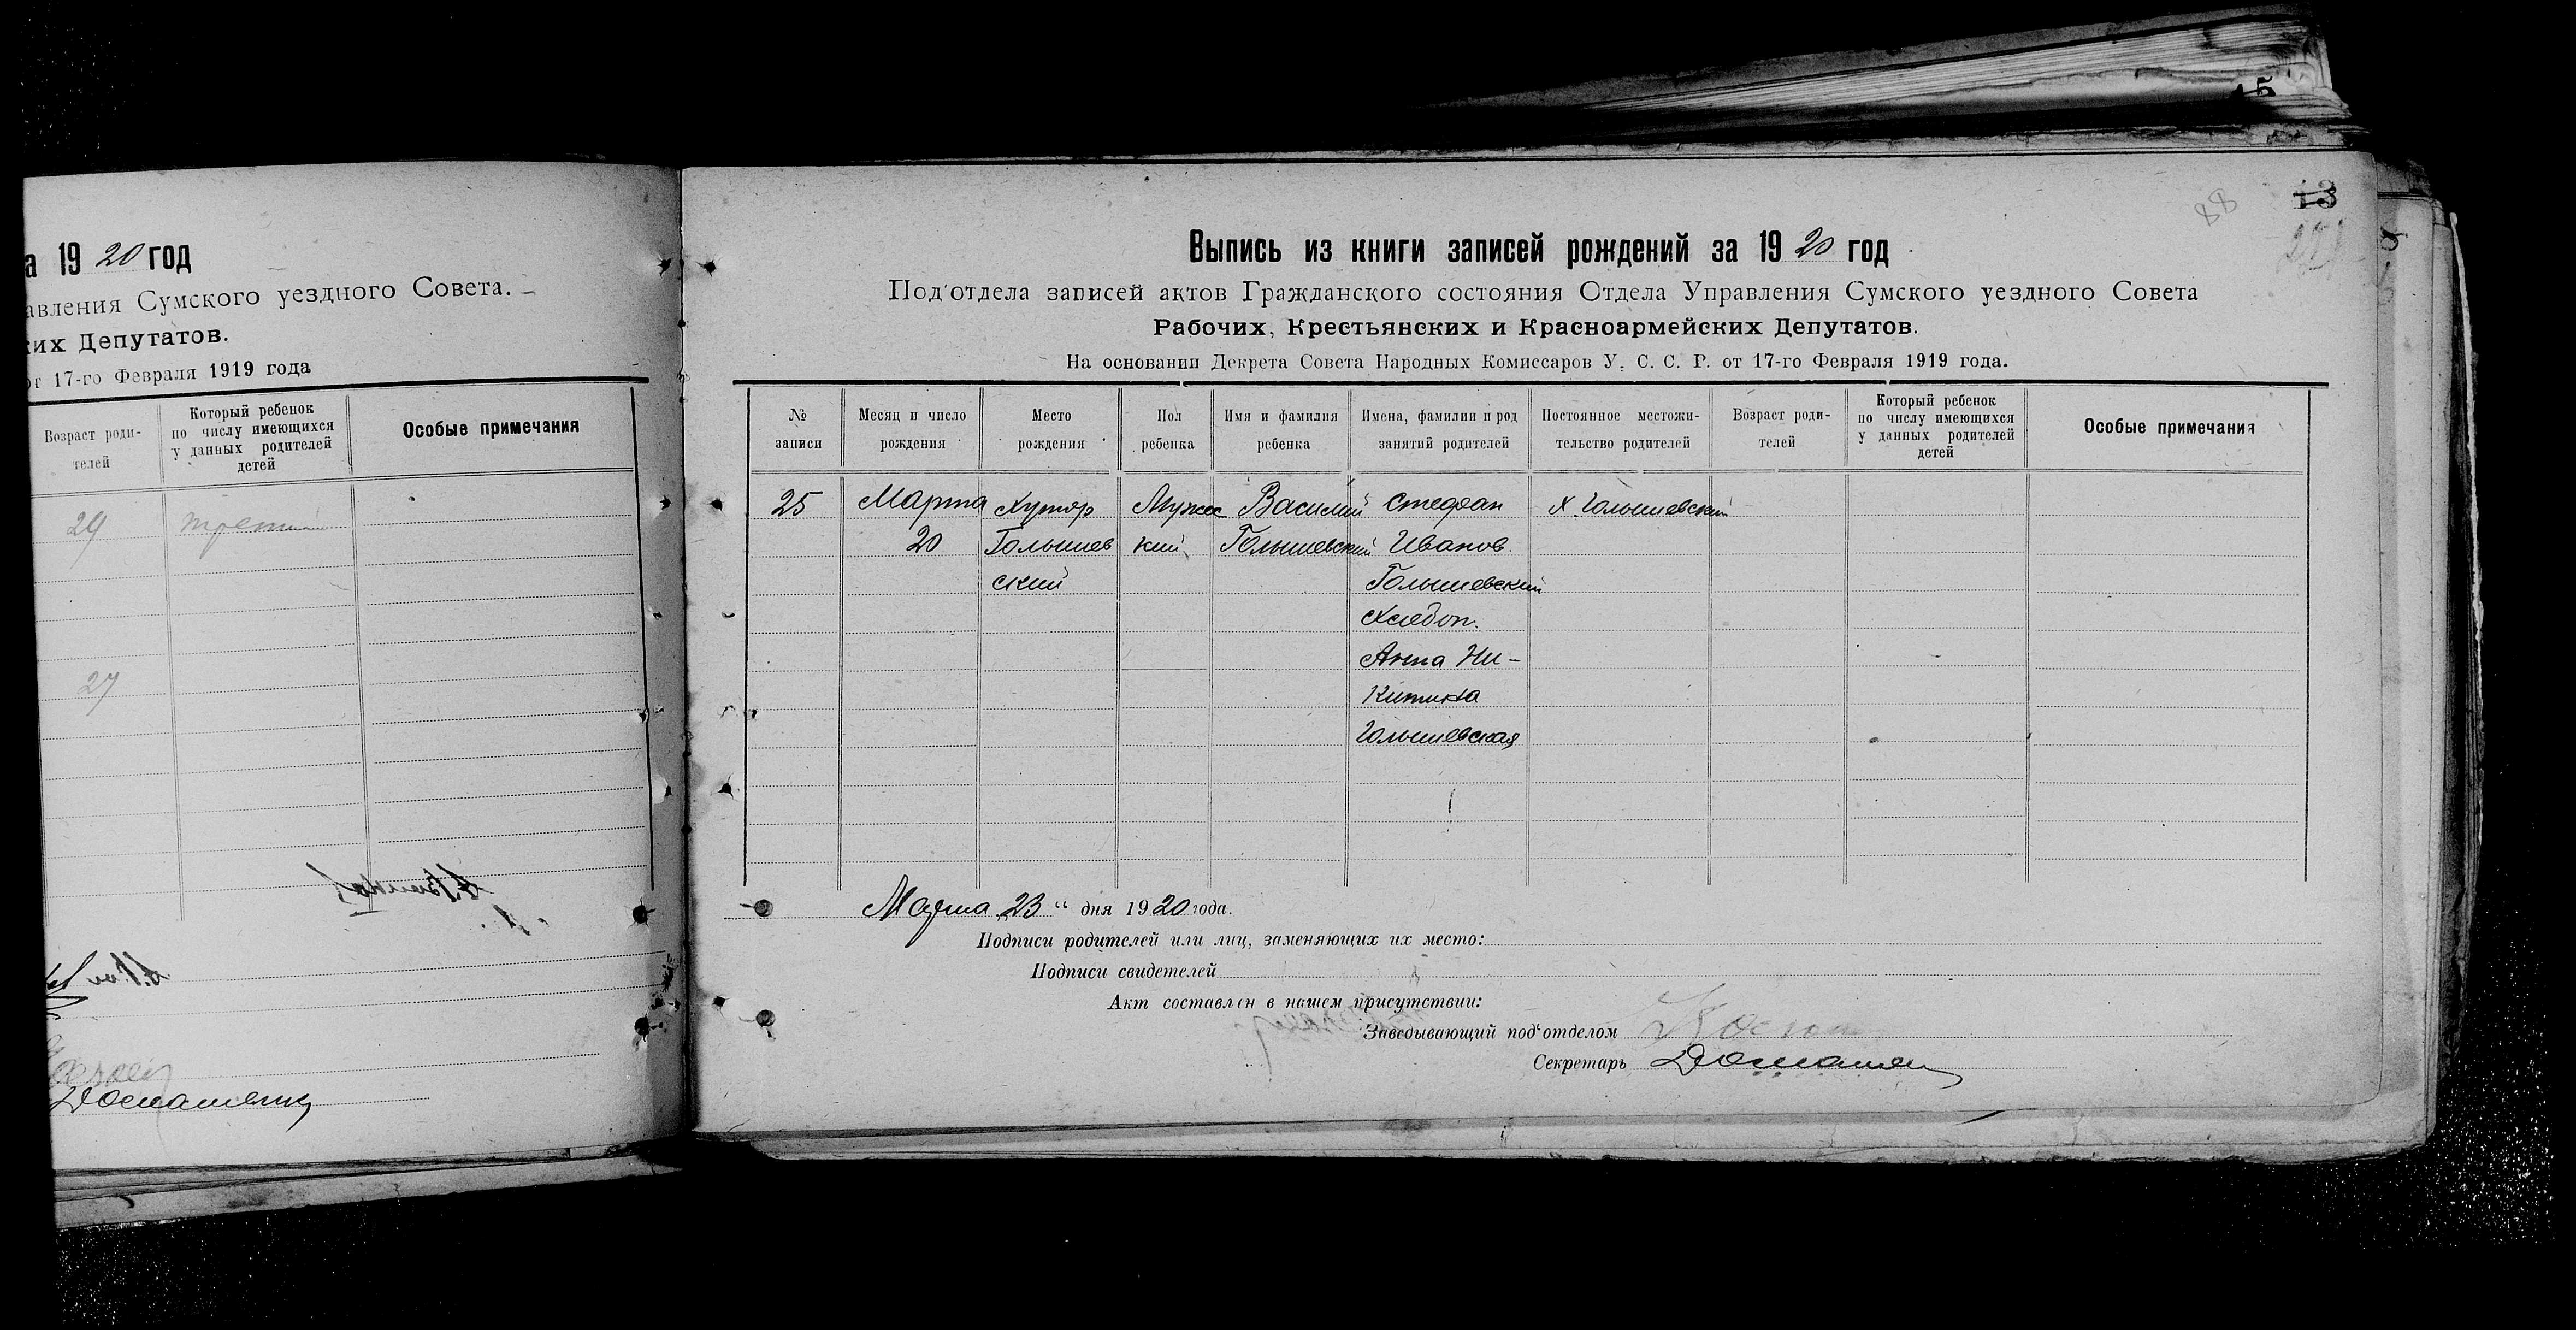 а 1920 год
авления Сумского уездного Совета.
ких Депутатов.
от 17-го Февраля 1919 года
Возраст роди-
телей
Который ребенок
по числу имеющихся
у данных родителей
детей
Особые примечания
29
27
Домашенко
15
88
13
Выпись из книги записей рождений за 1920 год
Под'отдела записей актов Гражданского состояния Отдела Управления Сумского уездного Совета
Рабочих, Крестьянских и Красноармейских Депутатов.
На основании Декрета Совета Народных Комиссаров У. С. С. Р. от 17-го Февраля 1919 года.
№
записи
Месяц и число
рождения
Место
рождения
Пол
ребенка
Имя и фамилия
ребенка
Имена, фамилии и род
занятий родителей
Постоянное местожи-
тельство родителей
Возраст роди-
телей
Который ребенок
по числу имеющихся
у данных родителей
детей
Особые примечания
25
Марта
20
Хутор
Голышев
ский
Мужес
кий
Василий
Голышевский
Стефан
Иванов
Голышевский
Хлебоп.
Анна Ни-
китина
Голышевская
Х. Голышевский
Марта „23“ дня 1920 года.
Подписи родителей или лиц, заменяющих их место:
Подписи свидетелей
Акт составлен в нашем присутствии:
Заведывающий под'отделом
Секретарь